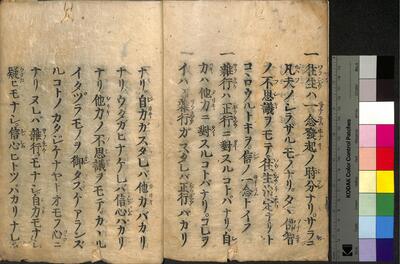 一往生ハ一念發起ノ時分ナリサラニ
凡夫ノシラザルモノナリタヾ佛智
ノ不思議ヲモテ往生治定ナリト
コヽロウルトキヲ信ノ一念トイフ
一雜行ハ正行ニ對スルコトバナリ自
力ハ他力ニ對スルコトバナリコレヲ
イハヾ雜行ガスタレバ正行バカリ
ナリ自力ガスタレバ他力バカリ
ナリウタガヒナケレバ信心バカリ
ナリ他力ノ不思議ヲモテカヽル
イタヅラモノヲ御タスケアランズ
ルコトノカタジケナヤトオモフ心ニ
ナリヌレバ雜行モナシ自力モナシ
疑ヒモナシ信心ヒトツバカリナレバ
KODAK Color Control Patches